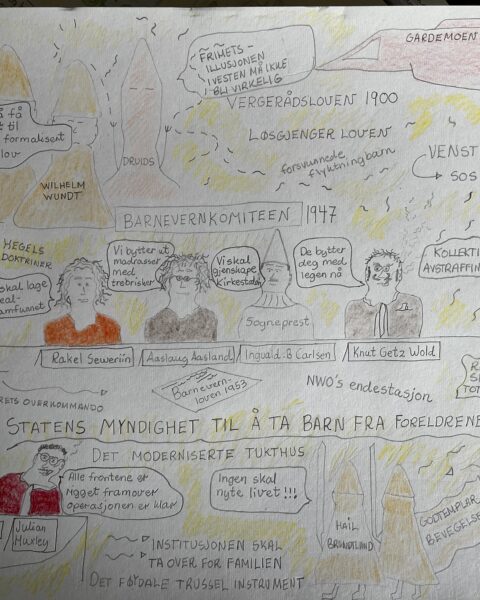 GARDEMOEN
FRIHETS-
ILLUSJONEN
I VESTEN MÅ IKKE
BLI VIRKELIG
VERGERÅDSLOVEN 1900
LØSGJENGER LOVEN
forsvunnede
flyktningbarn
VENST
SOS
få
til
formalisert
lov
WILHELM
WUNDT
DRUIDS
BARNEVERNKOMITEEN 1947
HEGELS
DOKTRINER
skal lage
eal-
amfunnet
Vi bytter ut
madrasser
med
trebrisker
Vi skal
gjenskape
kirkestaten
De bytter
deg med
legen nå
KOLLEKTI
AVSTRAFFIN
Sogneprest
Rakel Seweriin
Aaslaug Aasland
Ingvald .B Carlsen
Knut Getz Wold
Barnevern-
loven 1953
NWO's endestasjon
RETS OVERKOMMANDO
TOT
STATENS MYNDIGHET TIL Å TA BARN FRA FORELDRENE
DET MODERNISERTE TUKTHUS
Alle frontene er
rygget framover
operasjonen er klar
Ingen skal
nyte livet!!!
Julian
Huxley
HAIL
BRUNDTLAND
GODTEMPLAR
BEVEGELSE
INSTITUSJONEN SKAL
TA OVER FOR FAMILIEN
DET FØYDALE TRUSSEL INSTRUMENT